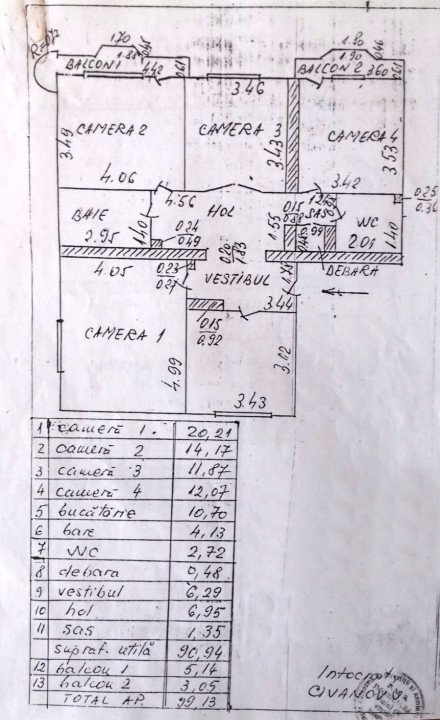 1.70
1.88
0.45
BALCON 1
4.42
0.61
3.46
1.80
0.46
1.90
BALCON 2
3.60
0.61
CAMERA 2
CAMERA 3
CAMERA 4
3.49
3.43
3.53
4.06
4.56
3.42
0.25
0.36
BAIE
HOL
SAS
WC
2.95
1.40
0.24
0.49
1.55
0.15
2.01
1.40
DEBARA
4.05
0.23
0.27
0.20
1.83
VESTIBUL
3.44
0.15
0.92
CAMERA 1
4.99
3.12
3.43
1 cameră 1. 20,21
2 cameră 2 14,17
3 cameră 3 11,87
4 cameră 4 12,07
5 bucătărie 10,70
6 baie 4,13
7 WC 2,72
8 debara 0,48
9 vestibul 6,29
10 hol 6,95
11 sas 1,35
supraf. utilă 90,94
12 balcon 1 5,14
13 balcon 2 3,05
TOTAL AP. 99,13
Intocmit